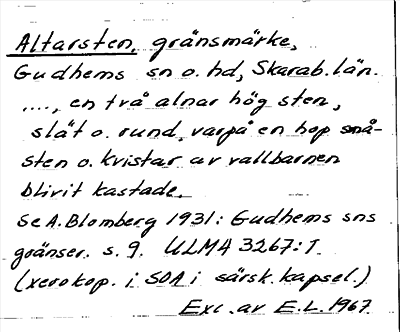 Altarsten, gränsmärke,
Gudhems sn o. hd, Skarab. län.
...., en två alnar hög sten,
slät o. rund, varpå en hop små-
sten o. kvistar av vallbarnen
blivit kastade.
Se A. Blomberg 1931: Gudhems sns
gränser. s. 9. ULMA 3267:1.
(xerokop. i SOA i särsk. kapsel.)
Exc. av E.L. 1967.